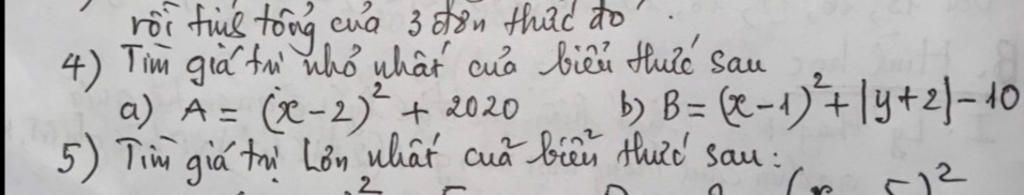 rồi tính tổng của 3 đơn thức đó.
4) Tìm giá trị nhỏ nhất của biểu thức sau
a) A = (x-2)² + 2020 b) B = (x-1)² + |y+2| - 10
5) Tìm giá trị lớn nhất của biểu thức sau: